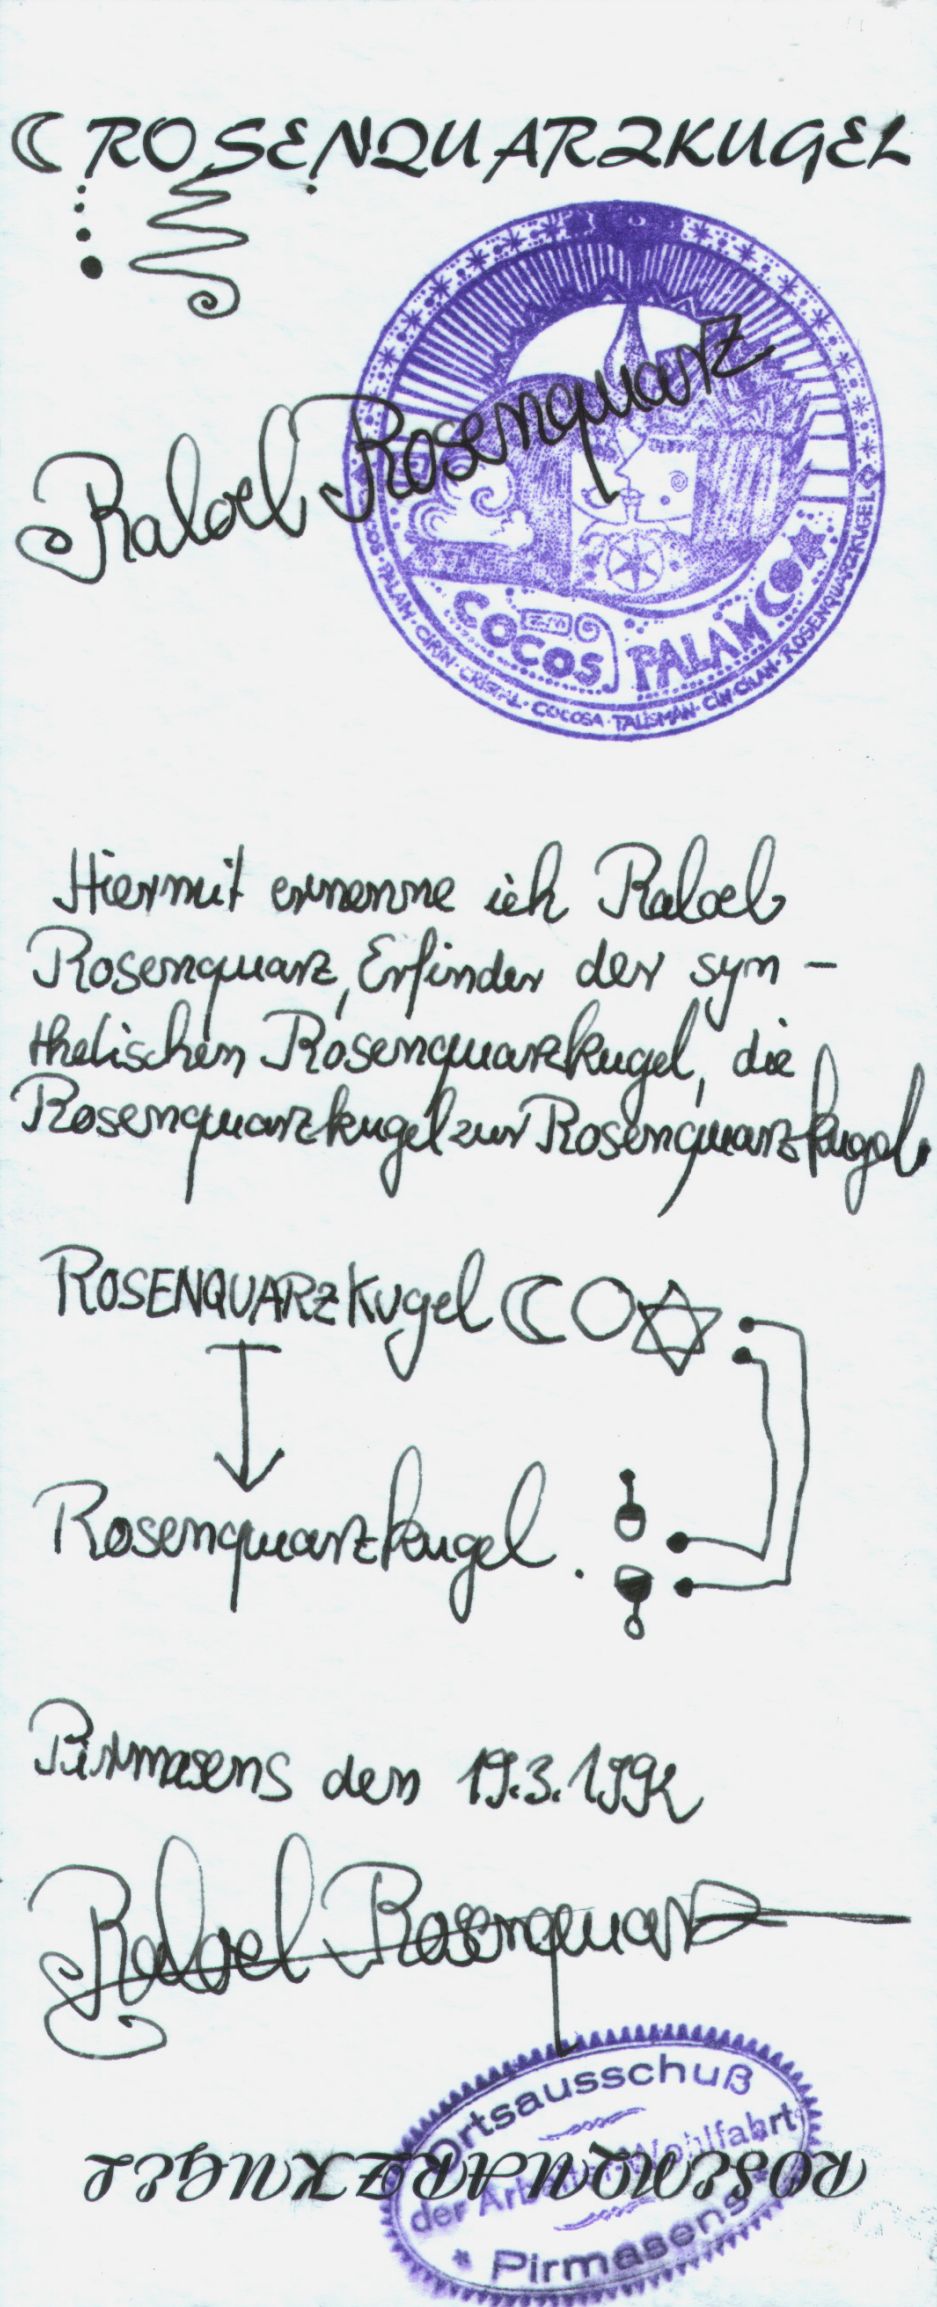 ROSENQUARZKUGEL
Raloel Rosenquarz
COCOS PALAM
COCOS · PALAM · CIRIN · CRISTAL · COCOSA · TALISMAN · CIN · CILAN · ROSENQUARZKUGEL
Hiermit ernenne ich Raloel
Rosenquarz, Erfinder der syn-
thetischen Rosenquarzkugel, die
Rosenquarzkugel zur Rosenquarzkugel.
ROSENQUARZKUgel
Rosenquarzkugel.
Pirmasens den 19.3.1992
Raloel Rosenquarz
Ortsausschuß
der Arbeiterwohlfahrt
* Pirmasens *
ROSENQUARZKUGEL